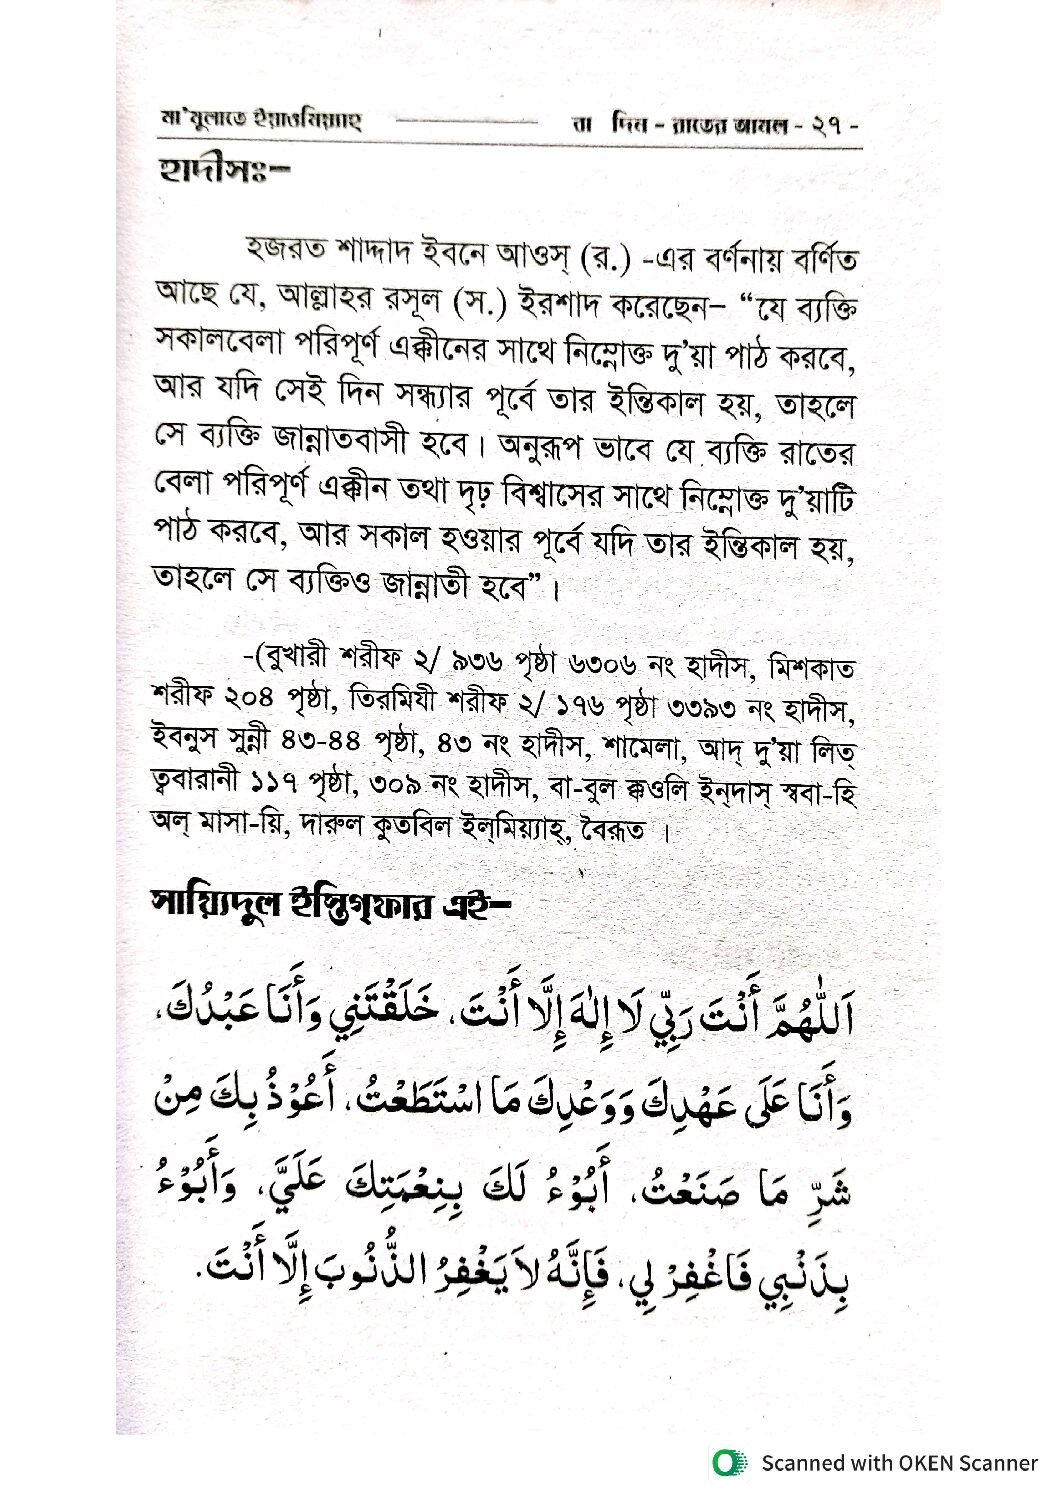 মা'মূলাতে ইয়াওমিয়্যাহ্ ——— বা দিন - রাতের আমল - ২৭ -
হাদীসঃ–
হজরত শাদ্দাদ ইবনে আওস্ (র.) -এর বর্ণনায় বর্ণিত
আছে যে, আল্লাহর রসূল (স.) ইরশাদ করেছেন– “যে ব্যক্তি
সকালবেলা পরিপূর্ণ এক্কীনের সাথে নিম্নোক্ত দু’য়া পাঠ করবে,
আর যদি সেই দিন সন্ধ্যার পূর্বে তার ইন্তিকাল হয়, তাহলে
সে ব্যক্তি জান্নাতবাসী হবে। অনুরূপ ভাবে যে ব্যক্তি রাতের
বেলা পরিপূর্ণ এক্কীন তথা দৃঢ় বিশ্বাসের সাথে নিম্নোক্ত দু’য়াটি
পাঠ করবে, আর সকাল হওয়ার পূর্বে যদি তার ইন্তিকাল হয়,
তাহলে সে ব্যক্তিও জান্নাতী হবে”।
-(বুখারী শরীফ ২/ ৯৩৬ পৃষ্ঠা ৬৩০৬ নং হাদীস, মিশকাত
শরীফ ২০৪ পৃষ্ঠা, তিরমিযী শরীফ ২/ ১৭৬ পৃষ্ঠা ৩৩৯৩ নং হাদীস,
ইবনুস সুন্নী ৪৩-৪৪ পৃষ্ঠা, ৪৩ নং হাদীস, শামেলা, আদ্ দু’য়া লিত্
ত্ববারানী ১১৭ পৃষ্ঠা, ৩০৯ নং হাদীস, বা-বুল ক্বওলি ইন্‌দাস্ স্ববা-হি
অল্ মাসা-য়ি, দারুল কুতবিল ইল্‌মিয়্যাহ্, বৈরূত ।
সায়্যিদুল ইস্তিগ্‌ফার এই–
اَللّٰهُمَّ أَنْتَ رَبِّي لَا إِلٰهَ إِلَّا أَنْتَ، خَلَقْتَنِي وَأَنَا عَبْدُكَ،
وَأَنَا عَلَى عَهْدِكَ وَوَعْدِكَ مَا اسْتَطَعْتُ، أَعُوْذُ بِكَ مِنْ
شَرِّ مَا صَنَعْتُ، أَبُوْءُ لَكَ بِنِعْمَتِكَ عَلَيَّ، وَأَبُوْءُ
بِذَنْبِي فَاغْفِرْ لِي، فَإِنَّهُ لاَ يَغْفِرُ الذُّنُوبَ إِلَّا أَنْتَ.
Scanned with OKEN Scanner